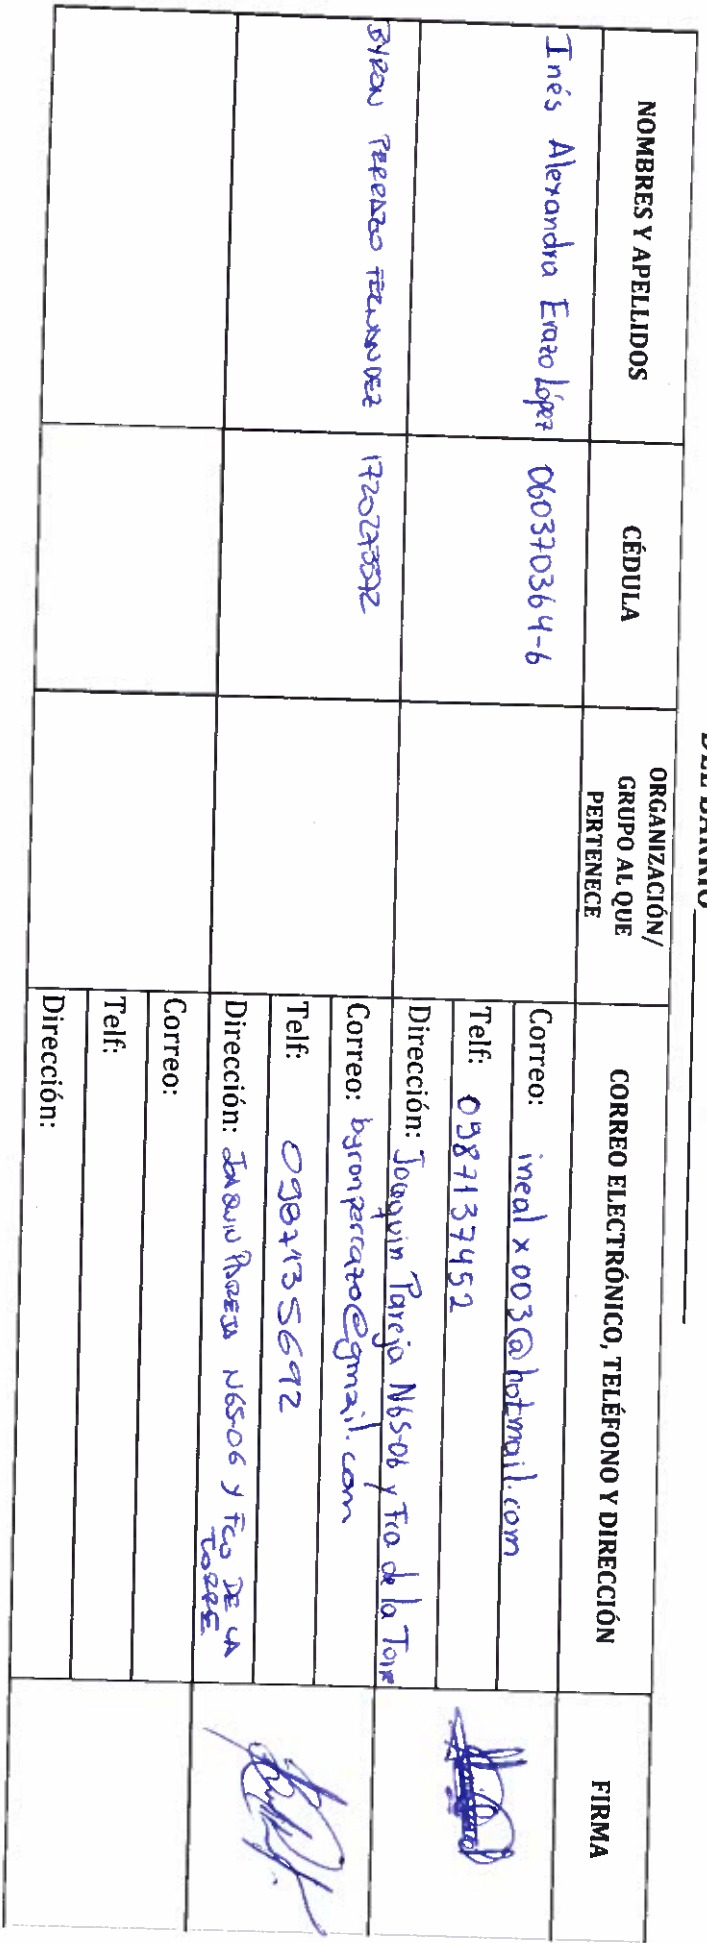 DEL BARRIO
NOMBRES Y APELLIDOS
CÉDULA
ORGANIZACIÓN/
GRUPO AL QUE
PERTENECE
CORREO ELECTRÓNICO, TELÉFONO Y DIRECCIÓN
FIRMA
Inés Alexandra Erazo López
060370364-6
Correo: inealx003@hotmail.com
Telf: 0987137452
Dirección: Joaquin Pareja N65-06 y Fco de la Torre
BYRON PERRAZO FERNANDEZ
Correo: byronperrazo@gmail.com
Telf: 0987135692
Dirección: JOAQUIN PAREJA N65-06 y FCO DE LA
TORRE
Correo:
Telf:
Dirección: